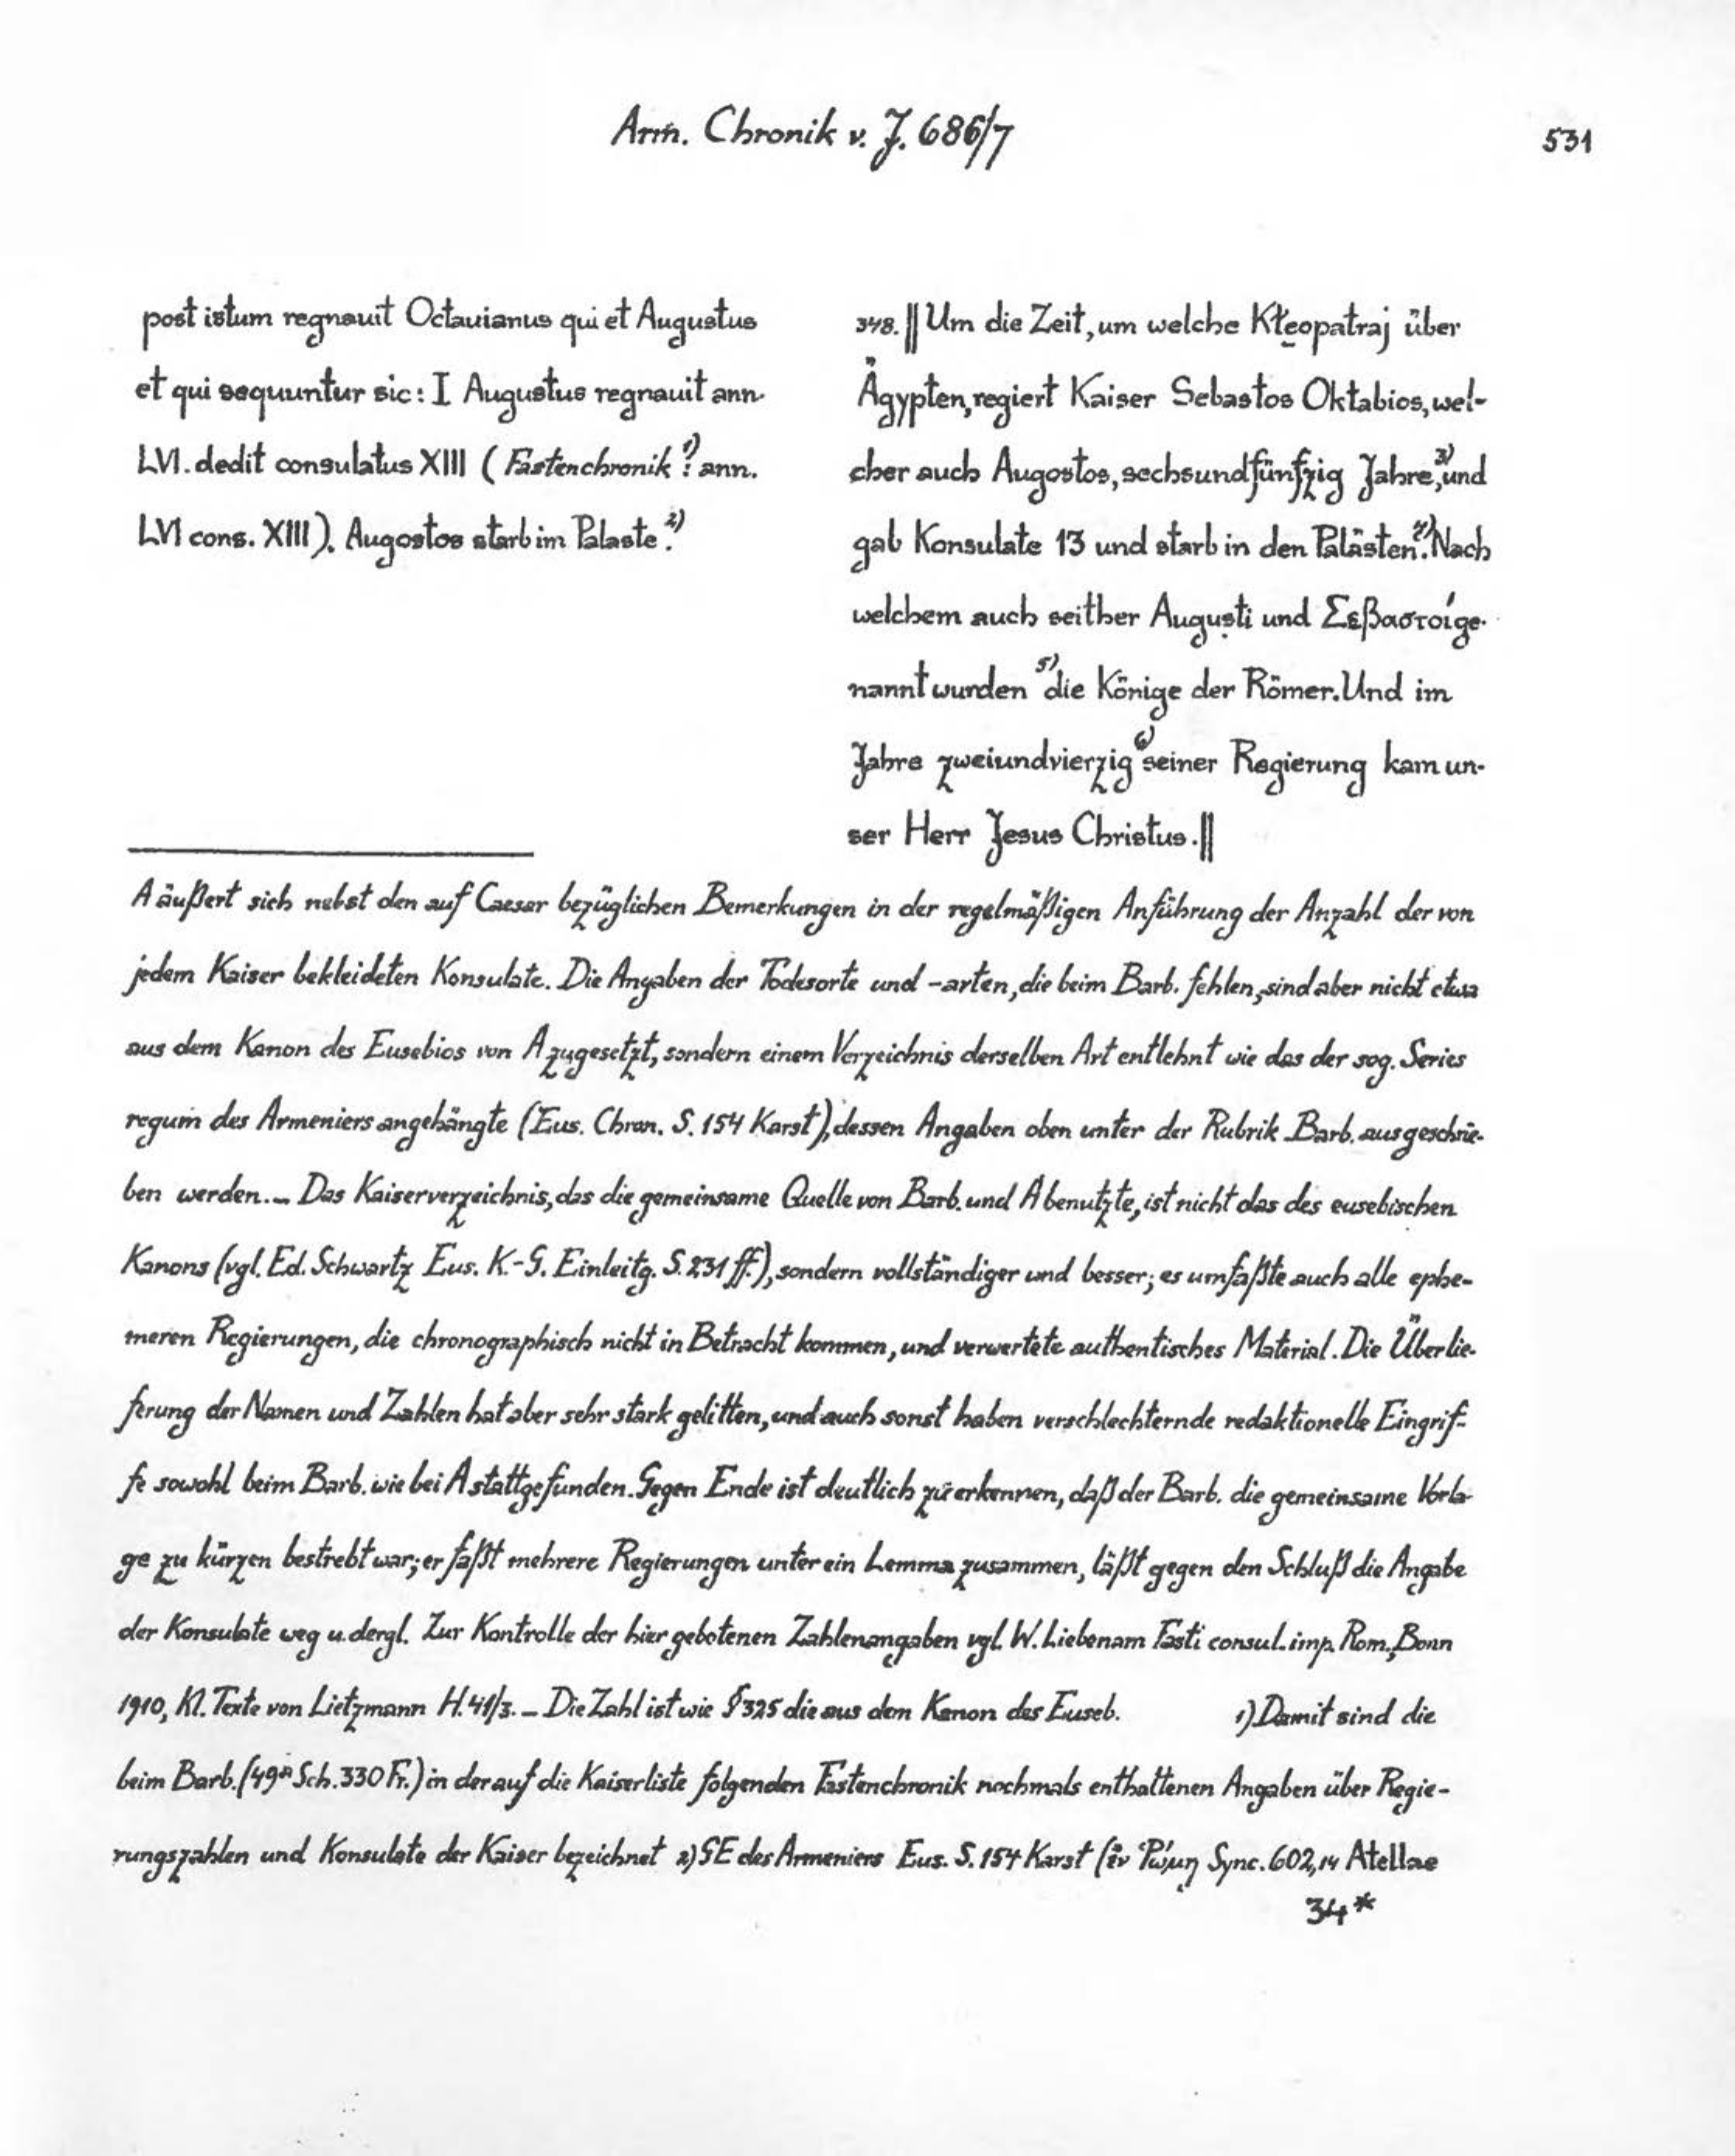 Arm. Chronik v. J. 686/7
531
post istum regnauit Octauianus qui et Augustus
et qui sequuntur sic: I Augustus regnauit ann.
LVI. dedit consulatus XIII (Fastenchronik 1): ann.
LVI cons. XIII). Augostos starb im Palaste.2)
348. || Um die Zeit, um welche Kłeopatraj über
Ägypten, regiert Kaiser Sebastos Oktabios, wel-
cher auch Augostos, sechsundfünfzig Jahre,3) und
gab Konsulate 13 und starb in den Palästen.4) Nach
welchem auch seither Augusti und Σεβαστοί ge-
nannt wurden 5) die Könige der Römer. Und im
Jahre zweiundvierzig 6) seiner Regierung kam un-
ser Herr Jesus Christus. ||
A äußert sich nebst den auf Caesar bezüglichen Bemerkungen in der regelmäßigen Anführung der Anzahl der von
jedem Kaiser bekleideten Konsulate. Die Angaben der Todesorte und -arten, die beim Barb. fehlen, sind aber nicht etwa
aus dem Kanon des Eusebios von A zugesetzt, sondern einem Verzeichnis derselben Art entlehnt wie das der sog. Series
regum des Armeniers angehängte (Eus. Chron. S. 154 Karst), dessen Angaben oben unter der Rubrik Barb. ausgeschrie-
ben werden. – Das Kaiserverzeichnis, das die gemeinsame Quelle von Barb. und A benutzte, ist nicht das des eusebischen
Kanons (vgl. Ed. Schwartz Eus. K.-G. Einleitg. S. 231 ff.), sondern vollständiger und besser; es umfaßte auch alle ephe-
meren Regierungen, die chronographisch nicht in Betracht kommen, und verwertete authentisches Material. Die Überlie-
ferung der Namen und Zahlen hat aber sehr stark gelitten, und auch sonst haben verschlechternde redaktionelle Eingrif-
fe sowohl beim Barb. wie bei A stattgefunden. Gegen Ende ist deutlich zu erkennen, daß der Barb. die gemeinsame Vorla-
ge zu kürzen bestrebt war; er faßt mehrere Regierungen unter ein Lemma zusammen, läßt gegen den Schluß die Angabe
der Konsulate weg u. dergl. Zur Kontrolle der hier gebotenen Zahlenangaben vgl. W. Liebenam Fasti consul. imp. Rom., Bonn
1910, Kl. Texte von Lietzmann H. 41/3. – Die Zahl ist wie § 325 die aus dem Kanon des Euseb. 1) Damit sind die
beim Barb. (49a Sch. 330 Fr.) in der auf die Kaiserliste folgenden Fastenchronik nochmals enthaltenen Angaben über Regie-
rungszahlen und Konsulate der Kaiser bezeichnet 2) GE des Armeniers Eus. S. 154 Karst (ἐν Ῥώμῃ Sync. 602,14 Atellae
34*